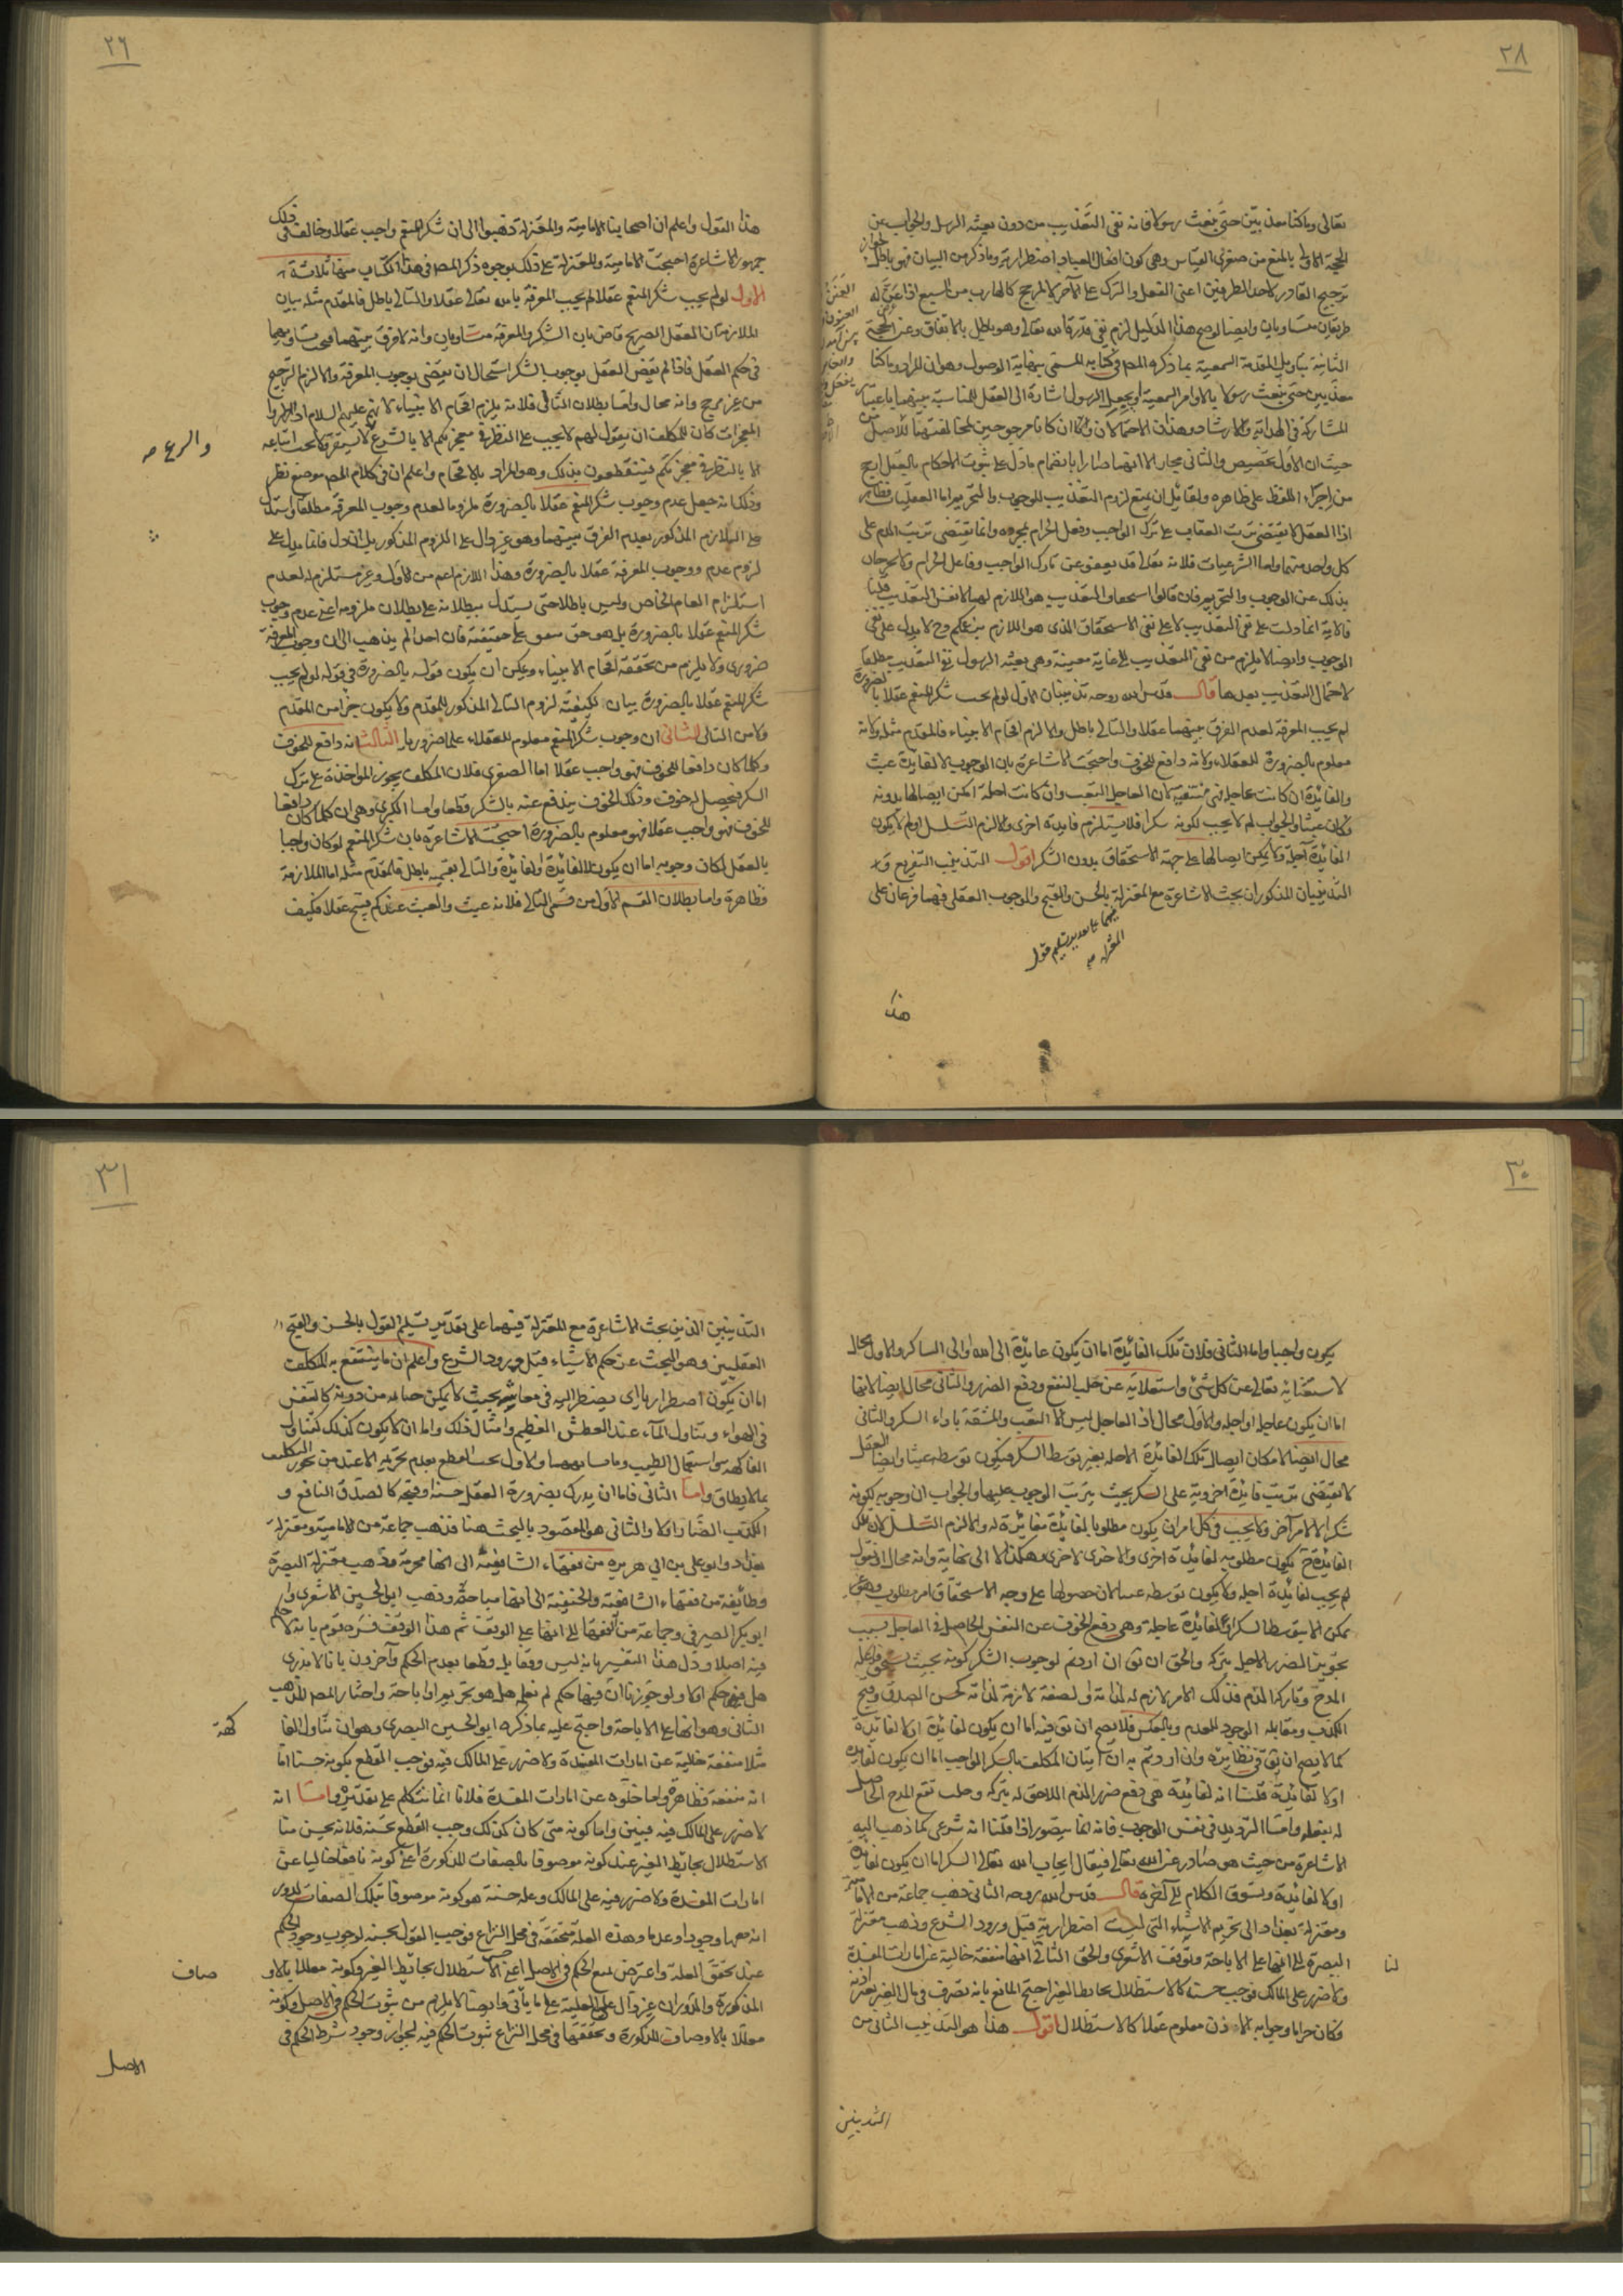 ٢٨
تعالى وما كنا معذبين حتى نبعث رسولا فانه نفى التعذيب من دون بعثه الرسل والجواب عن
الحجة الاولى بالمنع من صغرى القياس وهى كون افعال العباد اضطرارية وما ذكر من البيان فهو باطل لجواز
ترجيح القادر لاحد الطرفين اعنى الفعل والترك على الآخر لا لمرجح كالهارب من السبع اذا عن له
طريقان متساويان وايضا لو صح هذا الدليل لزم نفى قدرة الله تعالى وهو باطل بالاتفاق وعن الحجة
الثانية بتاويل المقدمة السمعية بما ذكره المص فى كتابه المسمى بنهاية الوصول وهو ان المراد وما كنا
معذبين حتى نبعث رسولا بالاوامر السمعية او يجعل الرسول اشارة الى العقل للمناسبة بينهما باعتبار
المشاركة فى الهداية والارشاد وهذان الاحتمالان وان كانا مرجوحين لمخالفتهما للاصل من
حيث ان الاول تخصيص والثانى مجاز الا انهما صارا بانضمام ما دل على ثبوت الاحكام بالعقل ارجح
من اجراء اللفظ على ظاهره ولقائل ان يمنع لزوم التعذيب للوجوب والتحريم اما العقليات فظاهر
اذ العقل لا يقتضى ترتب العقاب على ترك الواجب وفعل الحرام بمجرده وانما يقتضى ترتب الذم على
كل واحد منهما واما الشرعيات فلانه تعالى قد يعفو عن تارك الواجب وفاعل الحرام ولا يخرجان
بذلك عن الوجوب والتحريم فان قالوا استحقاق التعذيب هو اللازم لهما لا نفس التعذيب قلنا
فالاية انما دلت على نفى التعذيب لا على نفى الاستحقاق الذى هو اللازم بزعمكم وح لا يدل على نفى
الوجوب وايضا لا يلزم من نفى التعذيب الى غاية معينة وهى بعثه الرسول نفى التعذيب مطلقا
لاحتمال التعذيب بعدها قال قدس الله روحه تذنيبان الاول لو لم يجب شكر المنعم عقلا بالضرورة
لم يجب المعرفة لعدم الفرق بينهما عقلا والتالى باطل والا لزم افحام الانبياء فالمقدم مثله ولانه
معلوم بالضرورة للعقلاء ولانه دافع للخوف واحتجت الاشاعرة بان الوجوب لا لفايدة عبث
والفائدة ان كانت عاجلة فهى منتفية لان العاجل التعب وان كانت اجلة امكن ايصالها بدونه
فكان عبثا والجواب لم لا يجب لكونه شكرا فلا يستلزم فايدة اخرى والا لزم التسلسل او لم لا يكون
الفائدة آجلة ولا يمكن ايصالها على جهة الاستحقاق بدون الشكر اقول التذنيب التفريع و
التذنيبان المذكوران بحث الاشاعرة مع المعتزلة بالحسن والقبح والوجوب العقلى فهما فرعان على
فيهما على تقدير تسليم قول
المعتزلة صح
هذا
٢٦
هذا القول واعلم ان اصحابنا الامامية والمعتزلة ذهبوا الى ان شكر المنعم واجب عقلا وخالف فى ذلك
جمهور الاشاعرة احتجت الامامية والمعتزلة على ذلك بوجوه ذكر المص فى هذا الكتاب منها ثلاثة
الاول لو لم يجب شكر المنعم عقلا لم يجب المعرفة بالله تعالى عقلا والتالى باطل فالمقدم مثله بيان
الملازمة ان العقل الصريح قاض بان الشكر والمعرفة متساويان وانه لا فرق بينهما فى تساويهما
فى حكم العقل فاذا لم يقض العقل بوجوب الشكر استحال ان يقضى بوجوب المعرفة والا لزم الترجيح
من غير مرجح وانه محال واما بطلان التالى فلانه يلزم افحام الانبياء لانهم عليهم السلام اذا اظهروا
المعجزات كان للمكلف ان يقول لهم لا يجب على النظر فى معجزتكم الا بالشرع لا يستقر ولا يجب اتباعه
الا بالنظر فى معجزتكم فينقطعون بذلك وهو المراد بالافحام واعلم ان فى كلام المص موضع نظر
وذلك انه جعل عدم وجوب شكر المنعم عقلا بالضرورة ملزوما لعدم وجوب المعرفة مطلقا واستدل
على التلازم المذكور بعدم الفرق بينهما وهو غير دال على اللزوم المذكور بل ان دل فانما يدل على
لزوم عدم وجوب المعرفة عقلا بالضرورة وهذا اللازم اعم من الاول وغير مستلزم له لعدم
استلزام العام الخاص وليس باطلا حتى يستدل ببطلانه على بطلان ملزومه اعنى عدم وجوب
شكر المنعم عقلا بالضرورة بل هو حق متفق على حقيقته فان احدا لم يذهب الى ان وجوب المعرفة
ضرورى ولا يلزم من تحققه افحام الانبياء ويمكن ان يكون قوله بالضرورة فى قوله لو لم يجب
شكر المنعم عقلا بالضرورة بيان لكيفية لزوم التالى المذكور للمقدم ولا يكون جزأ من المقدم
ولا من التالى الثانى ان وجوب شكر المنعم معلوم للعقلاء علما ضروريا الثالث انه دافع للخوف
وكلما كان دافعا للخوف فهو واجب عقلا اما الصغرى فلان المكلف يجوز المواخذة على ترك
الشكر فيحصل له خوف وذلك الخوف يندفع عنه بالشكر قطعا واما الكبرى وهى ان كلما كان دافعا
للخوف فهو واجب عقلا فهو معلوم بالضرورة احتجت الاشاعرة بان شكر المنعم لو كان واجبا
بالعقل لكان وجوبه اما ان يكون لا لفائدة او لفائدة والتالى بقسميه باطل فالمقدم مثله اما الملازمة
فظاهرة واما بطلان القسم الاول من قسمى التالى فلانه عبث والعبث عندكم قبيح عقلا فكيف
٣٠
يكون واجبا واما الثانى فلان تلك الفائدة اما ان يكون عائدة الى الله والى الشاكر والاول محال
لاستغنائه تعالى عن كل شئ واستعلائه عن جلب النفع ودفع الضرر والثانى محال ايضا لانها
اما ان يكون عاجلة او اجلة والاول محال اذ العاجل ليس الا التعب والمشقة باداء الشكر والثانى
محال ايضا لامكان ايصال تلك الفائدة الاجلة بغير توسط الشكر فيكون توسطه عبثا وايضا العقل
لا يقتضى ترتب فائدة اخروية على الشكر بحيث يترتب الوجوب عليها والجواب ان وجوبه لكونه
شكرا لا لامر آخر ولا يجب فى كل امر ان يكون مطلوبا لفائدة مغايرة له والا لزم التسلسل لان تلك
الفائدة ح يكون مطلوبه لفائدة اخرى والاخرى لاخرى وهكذا الى لا نهاية وانه محال او نقول
لم يجب لفائدة اجلة ولا يكون توسطه عبثا لان حصولها على وجه الاستحقاق امر مطلوب وهو غير
ممكن الا بتوسط الشكر او لفائدة عاجلة وهى دفع الخوف عن النفس الحاصل فى العاجل بسبب
تجويز الضرر الاجل بتركه والحق ان نقول ان اردتم لوجوب الشكر كونه بحيث يستحق فاعله
المدح وتاركه الذم فذلك الامر لازم له لذاته او لصفة لازمة لذاته كحسن الصدق وقبح
الكذب ومقابله الوجود للعدم وبالعكس فلا يصح ان نقول فيه اما ان يكون لفائدة او لا لفائدة
كما لا يصح ان نقول فى نظائره وان اردتم به ان اتيان المكلف بالشكر الواجب اما ان يكون لفائدة
او لا لفائدة قلنا انه لفائدة هى دفع ضرر الذم اللاحق له بتركه وجلب نفع المدح الحاصل
له بفعله واما الترديد فى نفس الوجوب فانه انما يتصور اذا قلنا انه شرعى كما ذهب اليه
الاشاعرة من حيث هو صادر عن الله تعالى فيقال ايجاب الله تعالى الشكر اما ان يكون لفائدة
او لا لفائدة ويسوق الكلام الى آخره قال قدس الله روحه الثانى ذهب جماعة من الامامية
ومعتزلة بغداد الى تحريم الاشياء التى ليست اضطرارية قبل ورود الشرع وذهب معتزلة
البصرة الى انها على الاباحة وتوقف الاشعرى والحق الثانى انها منفعة خالية عن امارات المفسدة
لنا
ولا ضرر على المالك فوجب حسنه كالاستظلال بحائط الغير احتج المانع بانه تصرف فى مال الغير بغير اذنه
فكان حراما وجوابه الاذن معلوم عقلا كالاستظلال اقول هذا هو التذنيب الثانى من
التذنيبين
٣١
التذنيبين الذين بحث الاشاعرة مع المعتزلة فيهما على تقدير تسليم القول بالحسن والقبح
العقليين وهو البحث عن حكم الاشياء قبل ورود الشرع واعلم ان ما ينتفع به المكلف
اما ان يكون اضطراريا اى يضطر اليه فى معاشه بحيث لا يمكن حياته من دونه كالتنفس
فى الهواء وتناول الماء عند العطش العظيم وامثال ذلك واما ان لا يكون كذلك كتناول
الفاكهة واستعمال الطيب وما شابههما والاول يجب القطع بعدم تحريمه الا عند من يجوز التكليف
بما لا يطاق واما الثانى فاما ان يدرك بضرورة العقل حسنه او قبحه كالصدق النافع و
الكذب الضار او لا والثانى هو المقصود بالبحث هنا فذهب جماعة من الامامية ومعتزلة
بغداد وابو على بن ابى هريرة من فقهاء الشافعية الى انها محرمة وذهب معتزلة البصرة
وطائفة من فقهاء الشافعية والحنفية الى انها مباحة وذهب ابو الحسن الاشعرى و
ابو بكر الصيرفى وجماعة من الفقهاء الى انها على الوقف ثم هذا الوقف فسره قوم بانه لا حكم
فيه اصلا ورد هذا التفسير بانه ليس وقفا بل قطعا بعدم الحكم وآخرون بانا لا ندرى
هل فيها حكم او لا ولو جوزنا ان فيها حكم لم نعلم هل هو تحريم او اباحة واختار المص المذهب
الثانى وهو انها على الاباحة واحتج عليه بما ذكره ابو الحسين البصرى وهو ان تناول الفا
كهة
مثلا منفعة خالية عن امارات المفسدة ولا ضرر على المالك فيه فوجب القطع بكونه حسنا اما
انه منفعة فظاهرة واما خلوه عن امارات المفسدة فلانا انما نتكلم على تقديره واما انه
لا ضرر على المالك فيه فبين واما كونه متى كان كذلك وجب القطع بحسنه فلانه يحسن منا
الاستظلال بحائط الغير عند كونه موصوفا بالصفات المذكورة اعنى كونه نافعا خاليا عن
امارات المفسدة ولا ضرر فيه على المالك وعلة حسنه هو كونه موصوفا بتلك الصفات لدوران
معها وجودا وعدما وهذه العلة متحققة فى محل النزاع فوجب القول بحسنه لوجوب وجود الحكم
عند تحقق العلة واعترض بمنع الحكم فى الاصل اعنى حسن الاستظلال بحائط الغير وكونه معللا بالاو
صاف
المذكورة والدوران غير دال على العلية على ما ياتى وايضا لا يلزم من ثبوت الحكم فى الاصل وكونه
معللا بالاوصاف المذكورة وتحققها فى محل النزاع ثبوت الحكم فيه لجواز وجود شرط الحكم فى
الاصل